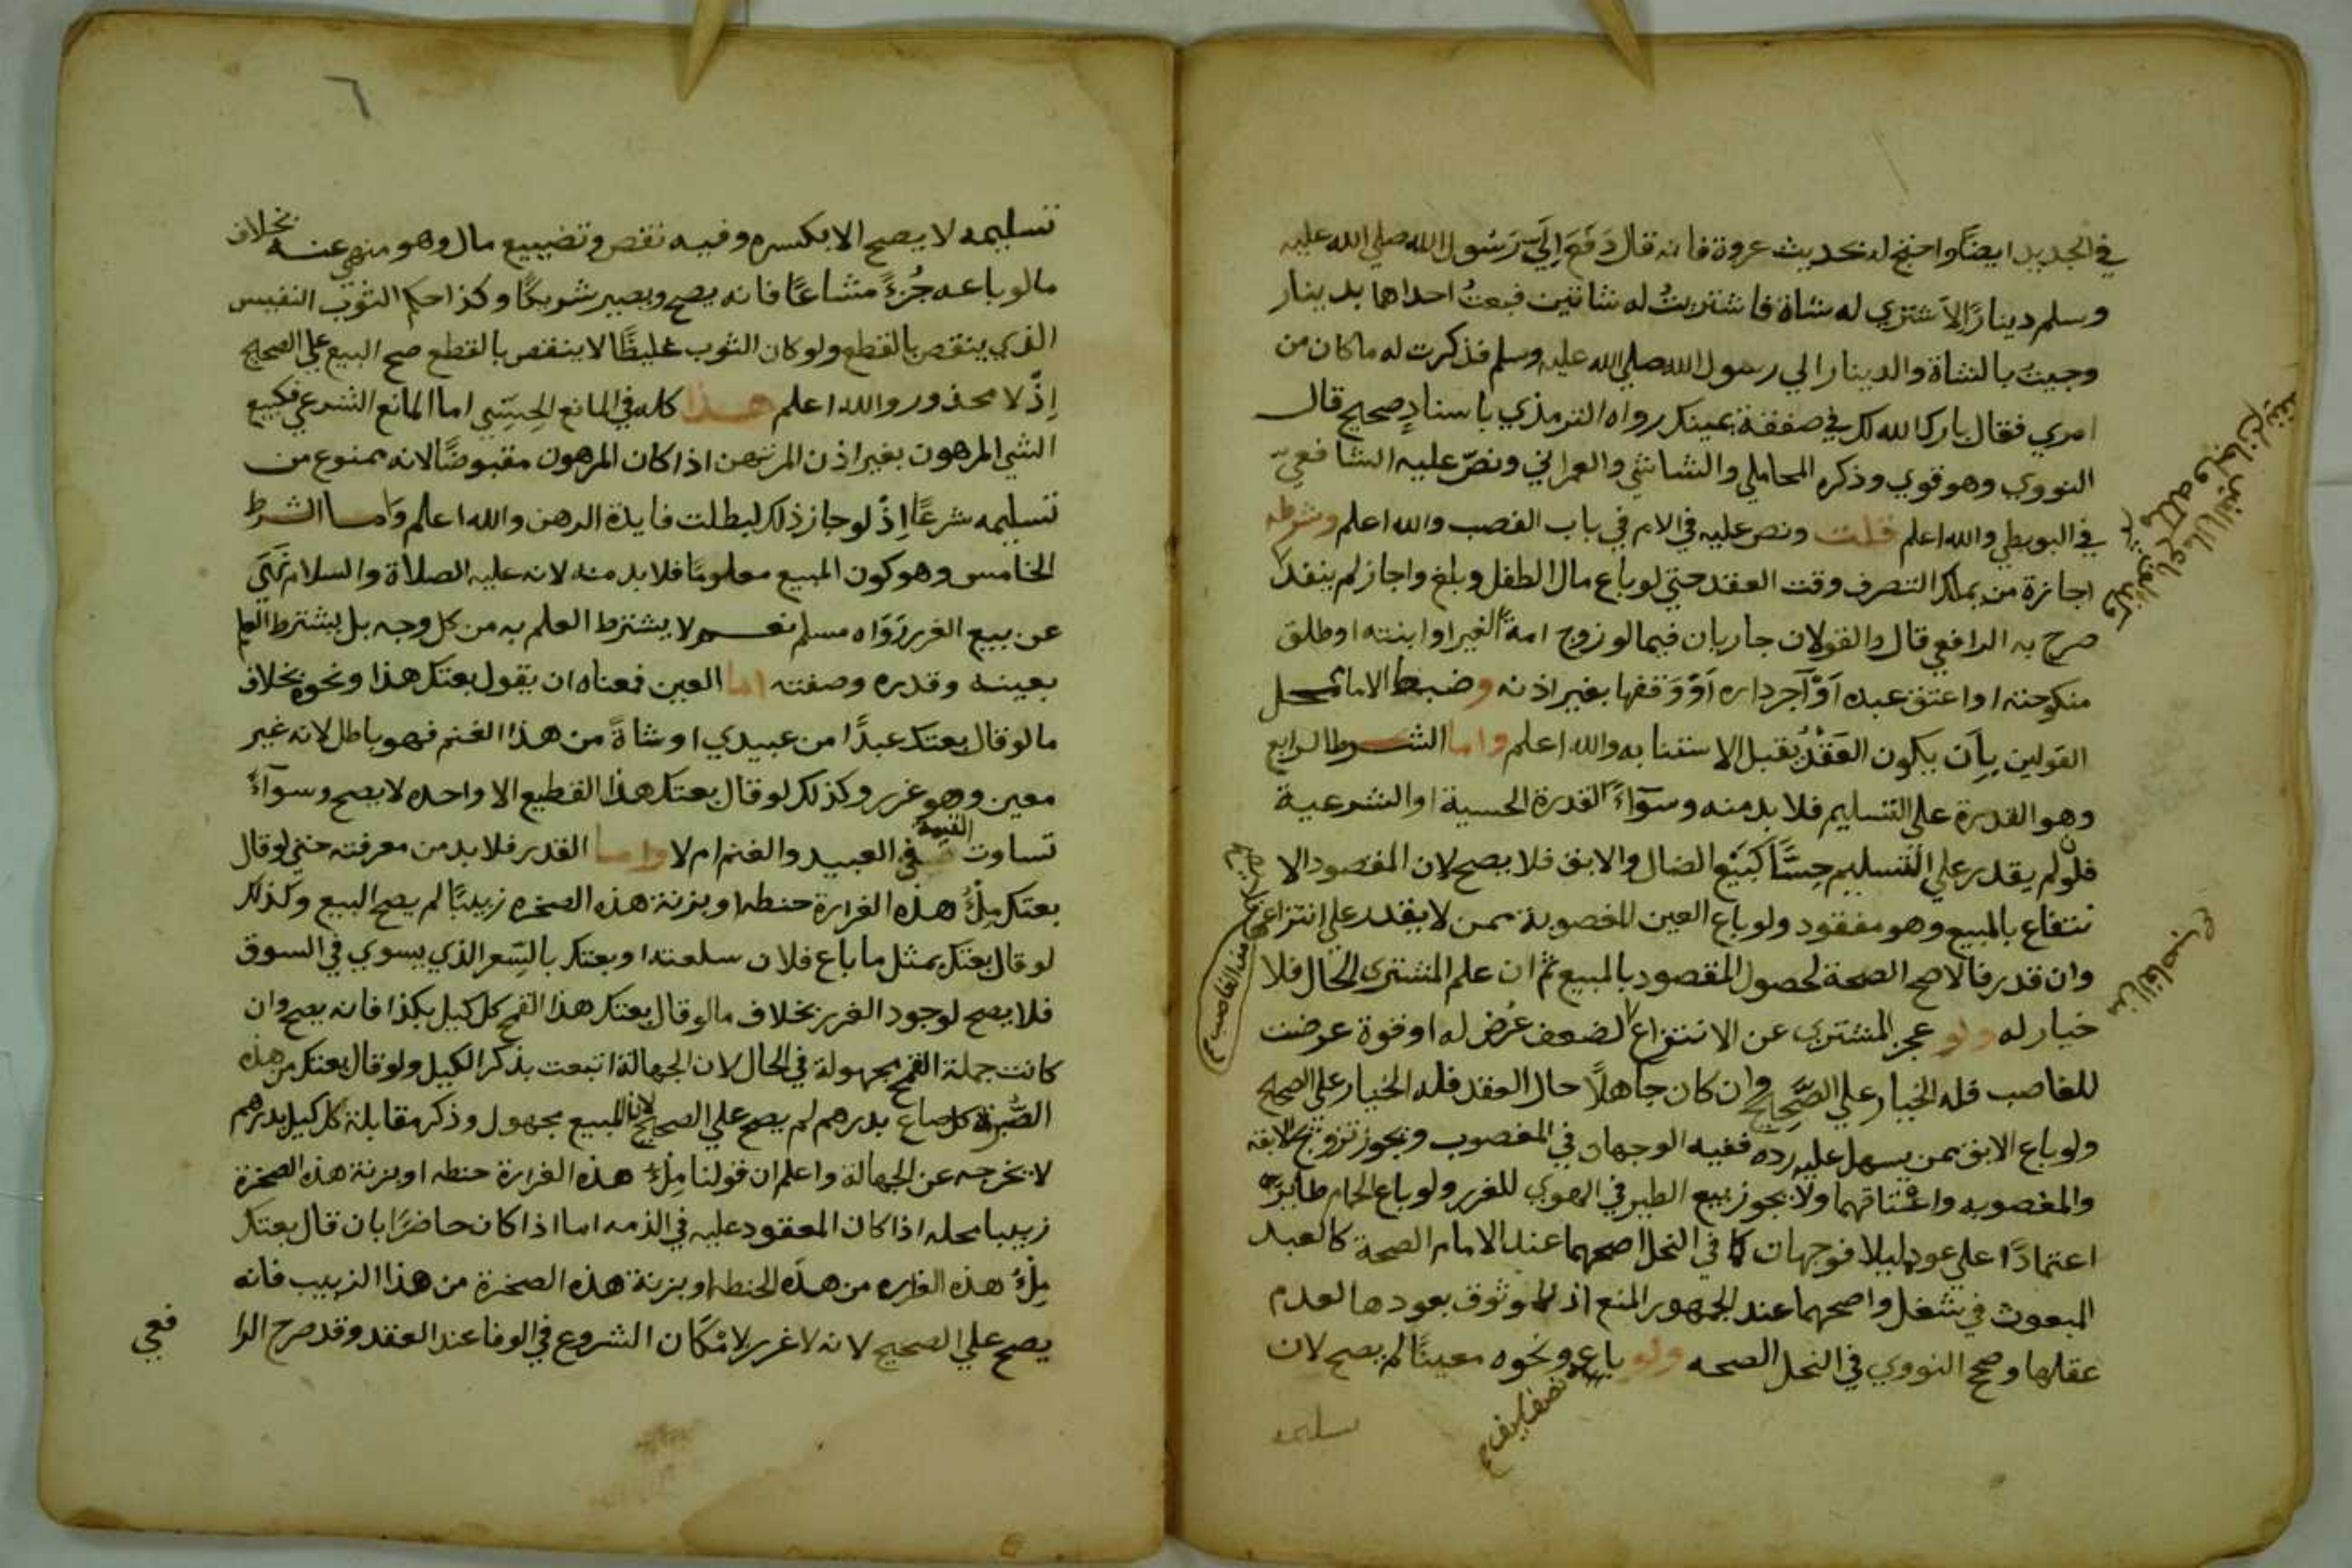 في الجديد ايضًا واحتج له بحديث عروة فانه قال دَفَعَ اِلَيَّ رَسُول الله صلي الله عليه
وسلم دينارًا لاَشتري له شاة فاشتريتُ له شاتين فبعتُ احداهما بدينار
وجيتُ بالشاة والدينار الي رسول الله صلي الله عليه وسلم فذكرت له ما كان من
امري فقال بارك الله لك في صفقة يمينك رواه الترمذي باسنادٍ صحيح قال
النووي وهو قوي وذكره المحاملي والشاشي والعمراني ونصّ عليه الشافعي
في البويطي والله اعلم قلت ونص عليه في الام في باب الغصب والله اعلم وشرطه
اجازة من يملك التصرف وقت العقد حتي لو باع مال الطفل وبلغ واجاز لم ينفذ
صرح به الرافعي قال والقولان جاريان فيما لو زوج امة الغير او ابنته او طلق
منكوحته او اعتق عبده اَوْ آجر داره اَوْ وَقفها بغير اذنه وضبط الامام محل
القولين بِاَن يكون العَقْدُ يقبل الاستنابه والله اعلم واما الشرط الرابع
وهو القدرة علي التسليم فلا بد منه وسوآءً القدرة الحسية او الشرعية
فلو لم يقدر علي التسليم حِسًّا كبَيْع الضال والابق فلا يصح لان المقصود الا
نتفاع بالمبيع وهو مفقود ولو باع العين المغصوبة ممن لا يقدر علي انتزاعها
وان قدر فالاصح الصحة لحصول المقصود بالمبيع ثم ان علم المشتري الحال فلا
خيار له ولو عجز المشتري عن الانتزاع لضعف عُرض له او قوة عرضت
للغاصب فله الخيار علي الصَّحِيح وان كان جاهلاً حال العقد فله الخيار علي الصحيح
ولو باع الابق ممن يسهل عليه رده ففيه الوجهان في المغصوب ويجوز تزويج الابقة
والمغصوبه واعتاقهما ولا يجوز بيع الطير في الهوي للغرر ولو باع الحمام طايرًا
اعتمادًا علي عوده ليلا فوجهان كما في النحل اصحهما عند الامام الصحة كالعبد
المبعوث في شغل واصحهما عند الجمهور المنع اذ لا موثوق بعودها لعدم
عقلها وصح النووي في النحل الصحه ولو باع ونحوه معينًا لم يصح لان
نصف سيف
من الغاصب
من الغاصب
تسليمه
تسليمه لا يصح الا بكسره وفيه نقص وتضييع مال وهو منهي عنه بخلاف
ما لو باعه جُزءً مشاعًا فانه يصح ويصير شريكًا وكذا حكم الثوب النفيس
الذي ينقص بالقطع ولو كان الثوب غليظًا لا ينقص بالقطع صح البيع علي الصحيح
اِذْ لا محذور والله اعلم هذا كله في المانع الحِسِّي اما المانع الشرعي فكبيع
الشي المرهون بغير اذن المرتهن اذا كان المرهون مقبوضًا لانه ممنوع من
تسليمه شرعًا اِذْ لو جاز ذلك لبطلت فايدة الرهن والله اعلم واما الشرط
الخامس وهو كون المبيع معلومًا فلا بد منه لانه عليه الصلاة والسلام نَهَي
عن بيع الغرر رَوَاه مسلم نعم لا يشترط العلم به من كل وجه بل يشترط العلم
بعينه وقدره وصفته اما العين فمعناه ان يقول بعتك هذا ونحوه بخلاف
ما لو قال بعتك عبدًا من عبيدي او شاةً من هذا الغنم فهو باطل لانه غير
معين وهو غرر وكذلك لو قال بعتك هذا القطيع الا واحده لا يصح وسوآءً
تساوت القيمة في العبيد والغنم ام لا واما القدر فلا بد من معرفته حتي لو قال
بعتك مِلْءُ هذه الغرارة حنطه او بزنة هذه الصخره زبيبًا لم يصح البيع وكذلك
لو قال بعتك بمثل ما باع فلان سلعته او بعتك بالسِّعر الذي يسوي في السوق
فلا يصح لوجود الغرر بخلاف ما لو قال بعتك هذا القمح كل كيل بكذا فانه يصح وان
كانت جملة القمح مجهولة في الحال لان الجهالة انتفت بذكر الكيل ولو قال بعتك من هذه
الصُّبرة كل صاع بدرهم لم يصح علي الصحيح لان المبيع مجهول وذكر مقابلة كل كيل بدرهم
لا يخرجه عن الجهالة واعلم ان قولنا مِلْءُ هذه الغرارة حنطه او بزنة هذه الصخرة
زبيبا محله اذا كان المعقود عليه في الذمه اما اذا كان حاضرًا بان قال بعتك
مِلْءُ هذه الغراره من هذه الحنطه او بزنة هذه الصخرة من هذا الزبيب فانه
يصح علي الصحيح لانه لا غرر لاِمْكَان الشروع في الوفا عند العقد وقد صرح الرا
فعي
٦